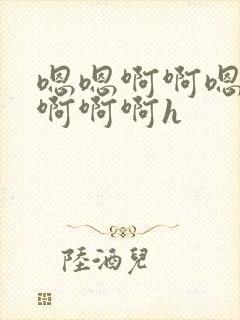 嗯嗯啊啊嗯
啊啊啊h
陸酒兒